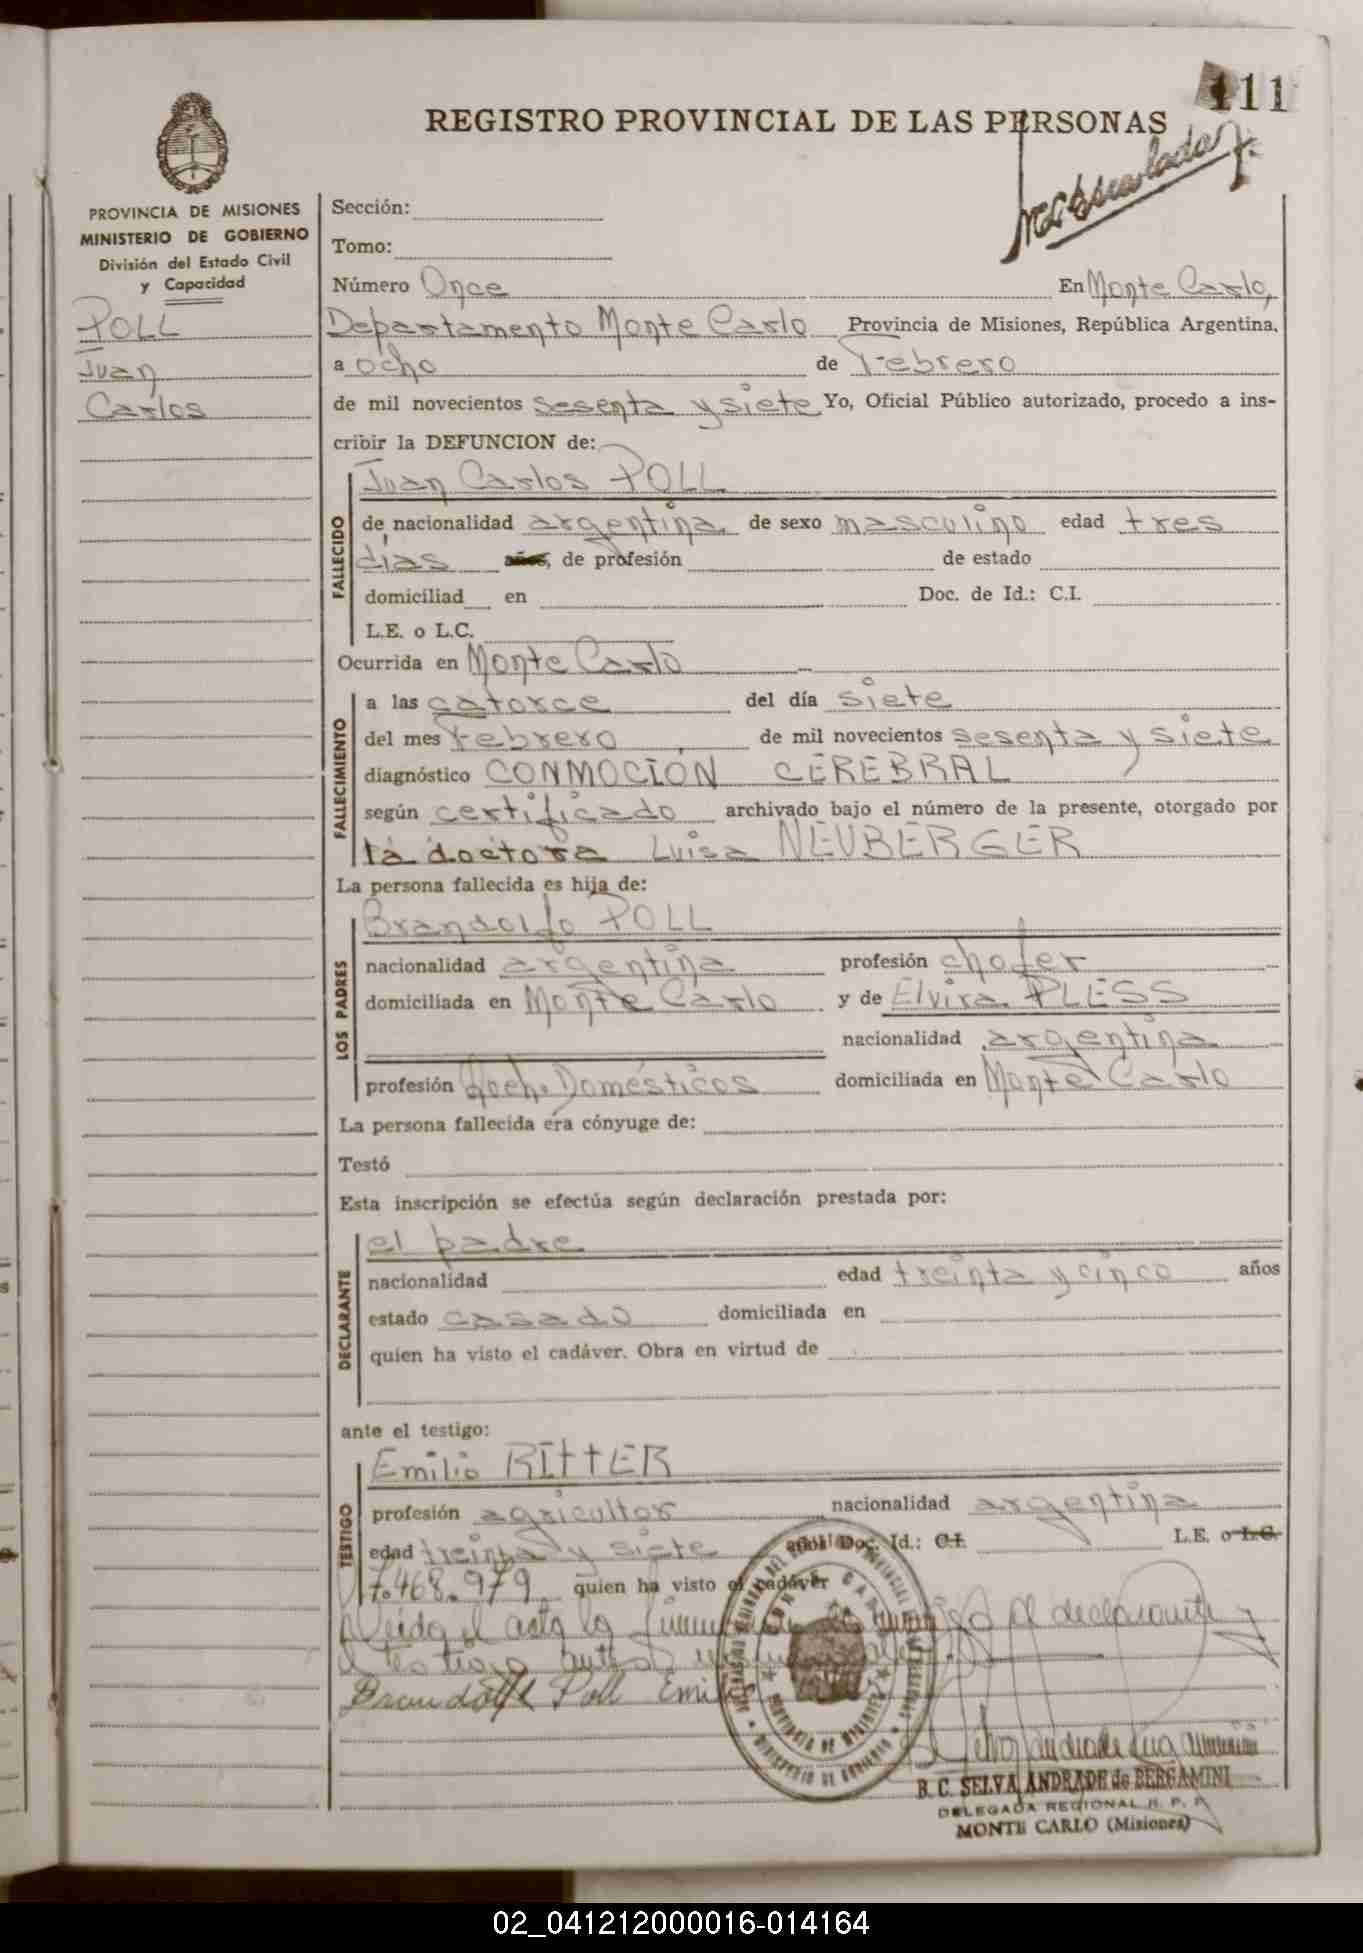 111
REGISTRO PROVINCIAL DE LAS PERSONAS
PROVINCIA DE MISIONES
MINISTERIO DE GOBIERNO
División del Estado Civil
y Capacidad
POLL
Juan
Carlos
Sección:
Tomo:
Número Once En Monte Carlo,
Departamento Monte Carlo Provincia de Misiones, República Argentina,
a ocho de Febrero
de mil novecientos sesenta y siete Yo, Oficial Público autorizado, procedo a ins-
cribir la DEFUNCION de:
Juan Carlos POLL
FALLECIDO
de nacionalidad argentina de sexo masculino edad tres
días años, de profesión de estado
domiciliad en Doc. de Id.: C.I.
L.E. o L.C.
Ocurrida en Monte Carlo
FALLECIMIENTO
a las catorce del día siete
del mes Febrero de mil novecientos sesenta y siete
diagnóstico CONMOCIÓN CEREBRAL
según certificado archivado bajo el número de la presente, otorgado por
la doctora Luisa NEUBERGER
La persona fallecida es hija de:
LOS PADRES
Brandolfo POLL
nacionalidad argentina profesión chofer
domiciliada en Monte Carlo y de Elvira PLESS
nacionalidad argentina
profesión Domésticos domiciliada en Monte Carlo
La persona fallecida era cónyuge de:
Testó
Esta inscripción se efectúa según declaración prestada por:
DECLARANTE
el padre
nacionalidad edad treinta y cinco años
estado casado domiciliada en
quien ha visto el cadáver. Obra en virtud de
ante el testigo:
TESTIGO
Emilio RITTER
profesión agricultor nacionalidad argentina
edad treinta y siete años Doc. Id.: C.I. L.E. o L.C.
7.468.979 quien ha visto el cadáver
Leída el acta la el declarante y
el testigo
Brandolf Poll Emilio
B. C. SELVA ANDRADE de BERGAMINI
DELEGADA REGIONAL R. P. P.
MONTE CARLO (Misiones)
02_041212000016-014164